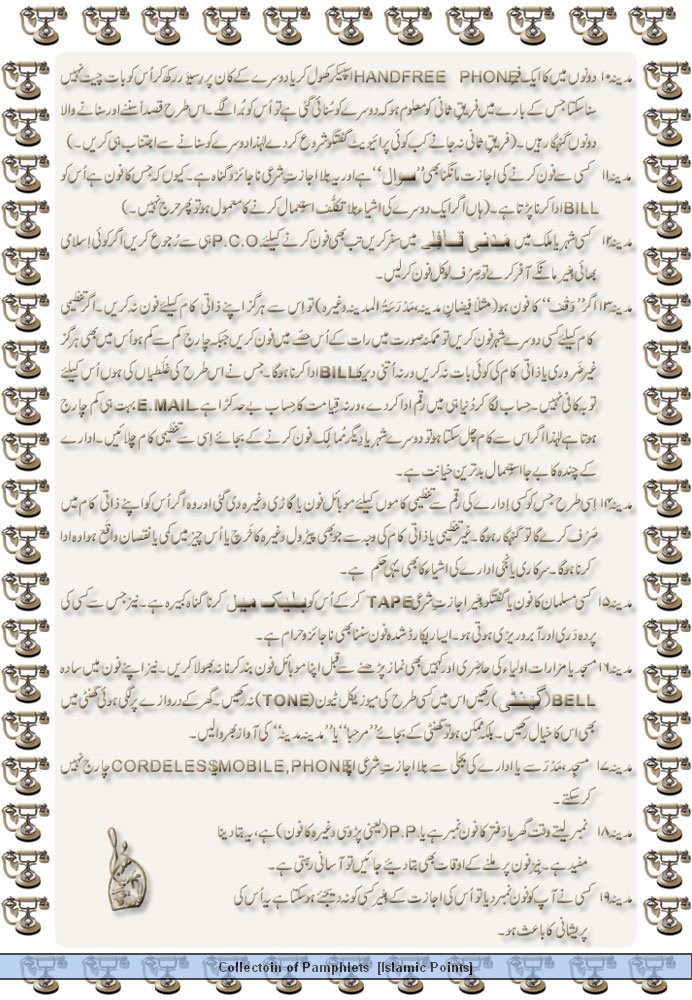 مدینہ۱۰ دونوں میں کا ایک فریق HANDFREE PHONE کا اسپیکر کھول کر یا دوسرے کے کان پر رِسیوَر رکھ کر اُس کو بات چیت نہیں
سنا سکتا جس کے بارے میں فریقِ ثانی کو معلوم ہو کہ دوسرے کو سُنائی گئی ہے تو اُس کو بُرا لگے۔ اس طرح قصداً سننے اور سنانے والا
دونوں گنہگار ہیں۔ (فریقِ ثانی نہ جانے کب کوئی پرائیویٹ گفتگو شروع کر دے لہٰذا دوسرے کو سنانے سے اجتناب ہی کریں۔)
مدینہ۱۱ کسی سے فون کرنے کی اجازت مانگنا بھی ’’سوال‘‘ ہے اور یہ بلا اجازتِ شرعی ناجائز و گناہ ہے۔ کیوں کہ جس کا فون ہے اُس کو
BILL ادا کرنا پڑتا ہے۔ (ہاں اگر ایک دوسرے کی اشیاء بلا تکلُّف استعمال کرنے کا معمول ہو تو پھر حرج نہیں۔)
مدینہ۱۲ کسی شہر یا ملک میں مدنی قافلے میں سفر کریں تب بھی فون کرنے کیلئے P.C.O. ہی سے رُجوع کریں اگر کوئی اِسلامی
بھائی بغیر مانگے آفر کرے تو صِرف لوکل فون کرلیں۔
مدینہ۱۳ اگر ’’وَقْف‘‘ کا فون ہو (مثلاً فیضانِ مدینہ، مَدْرَسَۃُ المدینہ وغیرہ) تو اِس سے ہرگز اپنے ذاتی کام کیلئے فون نہ کریں۔ اگر تنظیمی
کام کیلئے کسی دوسرے شہر فون کریں تو ممکنہ صورت میں رات کے اُس حصّے میں فون کریں جبکہ چارج کم سے کم ہو اُس میں بھی ہرگز
غیر ضَروری یا ذاتی کام کی کوئی بات نہ کریں ورنہ اُتنی دیر کا BILL ادا کرنا ہوگا۔ جس نے اس طرح کی غَلَطیاں کی ہوں اُس کیلئے
توبہ کافی نہیں۔ حساب لگا کر دُنیا ہی میں رقم ادا کردے، ورنہ قیامت کا حساب بے حد کڑا ہے۔ E.MAIL بہت ہی کم چارج
ہوتا ہے لہٰذا اگر اس سے کام چل سکتا ہو تو دوسرے شہر یا دِیگر مُمالِک فون کرنے کے بجائے اِسی سے تنظیمی کام چلائیں۔ ادارے
کے چندہ کا بے جا استعمال بدترین خیانت ہے۔
مدینہ۱۴ اِسی طرح جس کو کسی اِدارے کی رقم سے تنظیمی کاموں کیلئے موبائل فون یا گاڑی وغیرہ دی گئی اور وہ اگر اُس کو اپنے ذاتی کام میں
صَرْف کرے گا تو گنہگار ہوگا۔ غیر تنظیمی یا ذاتی کام کی وجہ سے جو بھی پیٹرول وغیرہ کا خَرچ یا اُس چیز میں کمی یا نقصان واقع ہو وہ ادا
کرنا ہوگا۔ سرکاری یا نجی ادارے کی اشیاء کا بھی یہی حکم ہے۔
مدینہ۱۵ کسی مسلمان کا فون یا گفتگو بغیر اجازتِ شرعی TAPE کرکے اُس کو بلیک میل کرنا گناہِ کبیرہ ہے۔ نیز جس سے کسی کی
پردہ دَری اور آبرو ریزی ہوتی ہو۔ ایسا ریکارڈ شدہ فون سننا بھی ناجائز و حرام ہے۔
مدینہ۱۶ مسجد یا مزاراتِ اولیاء کی حاضِری اور کہیں بھی نماز پڑھنے سے قبل اپنا موبائل فون بند کرنا نہ بھولا کریں۔ نیز اپنے فون میں سادہ
BELL (گھنٹی) رکھیں اس میں کسی طرح کی میوزیکل ٹیون (TONE) نہ رکھیں۔ گھر کے دروازے پر لگی ہوئی گھنٹی میں
بھی اس کا خیال رکھیں۔ بلکہ ممکن ہو تو گھنٹی کے بجائے ’’مرحبا‘‘ یا ’’مدینہ مدینہ‘‘ کی آواز بھروالیں۔
مدینہ۱۷ مسجد، مَدْرَسے یا ادارے کی بجلی سے بلا اجازتِ شرعی اپنا MOBILE, PHONE یا CORDELESS چارج نہیں
کرسکتے۔
مدینہ۱۸ نمبر لیتے وقت گھر یا دفتر کا فون نمبر ہے یا P.P. (یعنی پڑوسی وغیرہ کا فون) ہے، یہ بتا دینا
مفید ہے۔ نیز فون پر ملنے کے اوقات بھی بتا دیے جائیں تو آسانی رہتی ہے۔
مدینہ۱۹ کسی نے آپ کو فون نمبر دیا تو اُس کی اجازت کے بغیر کسی کو نہ دیجئے ہو سکتا ہے یہ اُس کی
پریشانی کا باعث ہو۔
Collectoin of Pamphlets [Islamic Points]